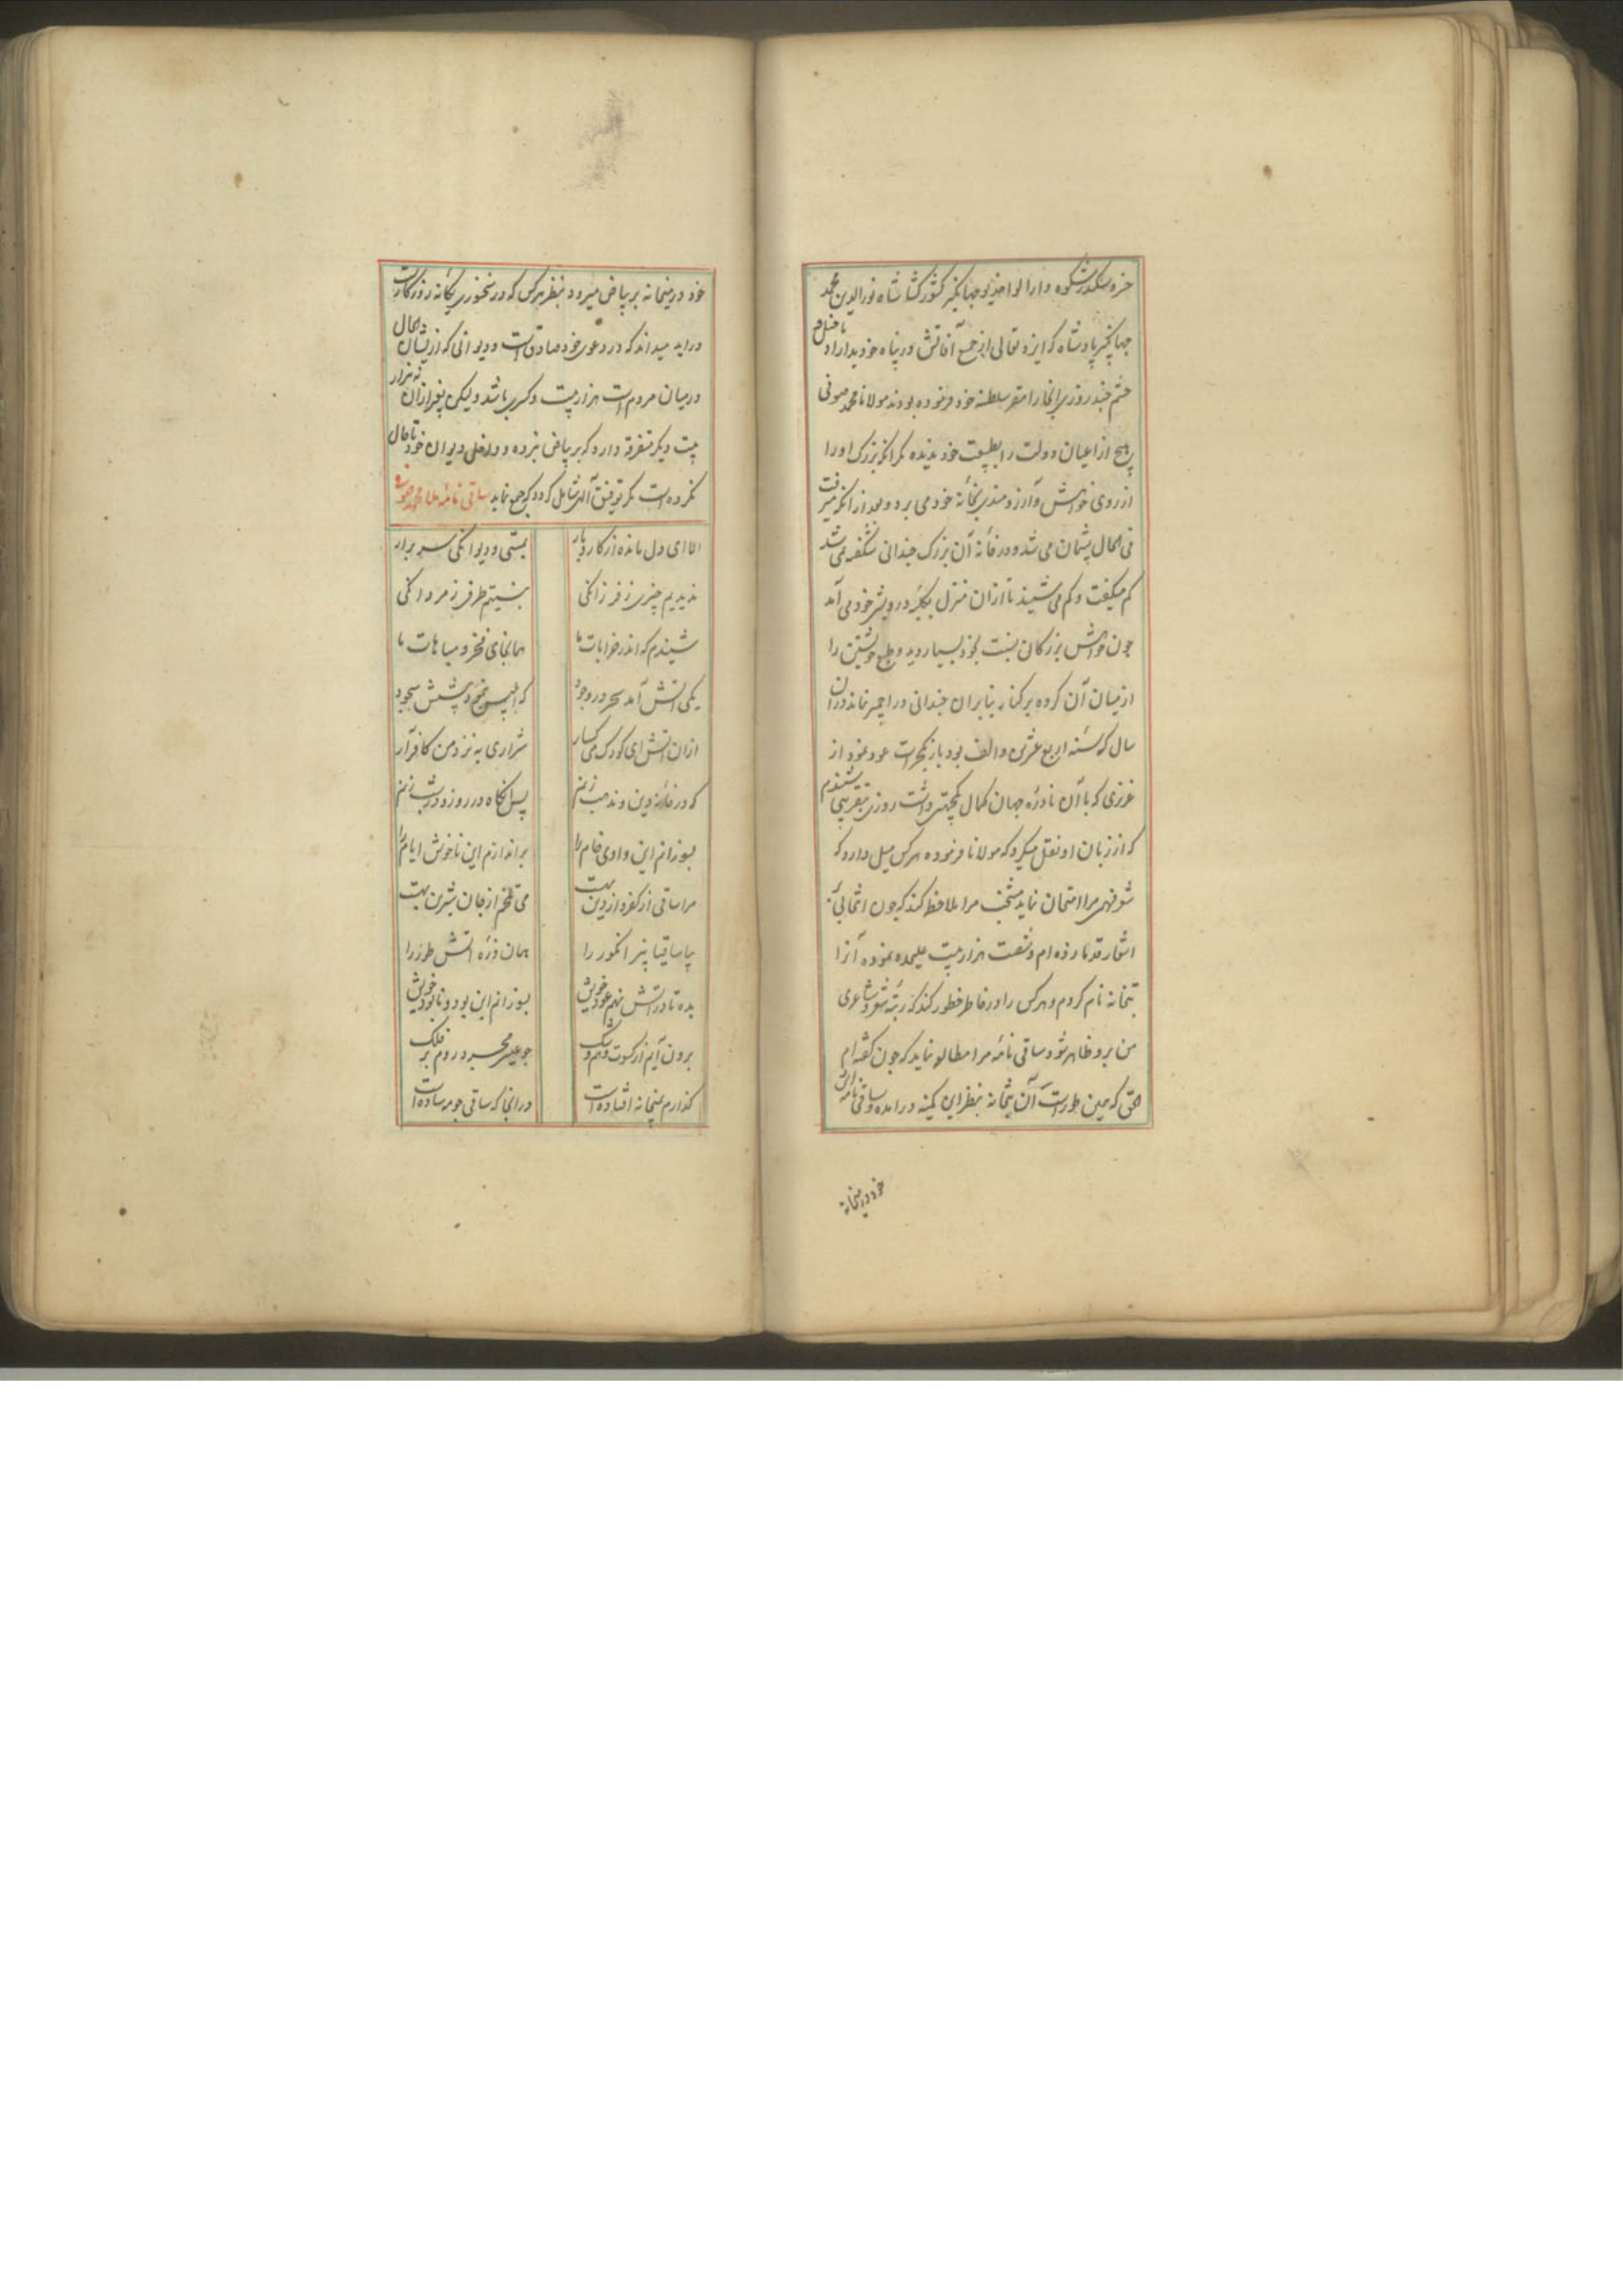 خسرو سکندر شکوه دارا لوا خدیو جهانگیر کشور کشا شاه نورالدین محمد
جهانگیر پادشاه که ایزد تعالی از جمیع آفاتش در پناه خود بدارد با خیل و
حشم چند روزی انجا را مقر سلطنة خود فرموده بودند مولانا محمد صوفی
هیچ از اعیان دولت را بطبیعت خود ندیده مگر انکه بزرگی او را
از روی خواهش و آرزومندی بخانه خود می برد و بعد ازانکه میرفت
فی الحال پشیمان می شد و در خانه آن بزرگ چندانی شکفته نمی شد
کم میگفت و کم می شنید تا ازان منزل بکلبه درویش خود می آمد
چون خواهش بزرگان نسبت بخود بسیار دید و طبع خویشتن را
از میان آن گروه بر کنار بنابران چندانی در اجمیر نماند دران
سال که سنه اربع عشرین و الف بود باز بگجرات عود نمود از
عزیزی که با آن نادره جهان کمال یکجهتی داشت روزی بتقریبی شنیدم
که از زبان او نقل میکرد که مولانا فرموده هرکس میل دارد که
شعر فهمی مرا امتحان نماید منتخب مرا ملاحظه کند که چون انتخابی
اشعار قدما زده ام و شصت هزار بیت علیحده نموده آنرا
بتخانه نام کردم و هرکس را در خاطر خطور کند که رتبه شعر و شاعری
من برو ظاهر شود ساقی نامه مرا مطالعه نماید که چون گفته ام
الحق که همین طورست آن بتخانه بنظر این کمینه درامده و ساقی نامه اش
خود در میخانه
خود در میخانه بر بیاض میبرد بنظر هرکس که در سخنوری یگانه روزگارست
دراید میداند که در دعوی خود صادق است و دیوانی که از ایشان در الحال
درمیان مردم است هزار بیت و کسری باشد و لیکن بغیر ازان نه هزار
بیت دیگر متفرقه دارد که بر بیاض نبرده و داخل دیوان خود تا حال
نکرده است مگر توفیق آلهی شامل گردد که جمع نماید ساقی نامه ملا محمد صوفی
الا ای دل مانده از کار و بار / بمستی و دیوانگی سر برار
ندیدیم چیزی ز فرزانگی / نبستیم طرفی ز مردانگی
شنیدم که اندر خرابات ما / همانجای فخر و مباهات ما
یکی آتش آمد سحر در وجود / که ابلیس نمود پیشش سجود
ازان آتش ای کودک می گسار / شراری به نزد من کافر آر
که در خانه دین و مذهب زنم / پس انگاه در روز و در شب زنم
بسوزانم این وادی خام را / براندازم این ناخوش ایام را
مرا ساقی از کفر و از دین بهست / می تلخم از جان شیرین بهست
بیا ساقیا پنبر انگور را / همان ذره آتش طور را
بده تا در آتش نهم عود خویش / بسوزانم این بود و نابود خویش
برون آیم از کسوت وهم و شک / چو عیسی مجرد روم بر فلک
گذارم بمیخانه افتاده است / در انجا که ساقی چو مه ساده است